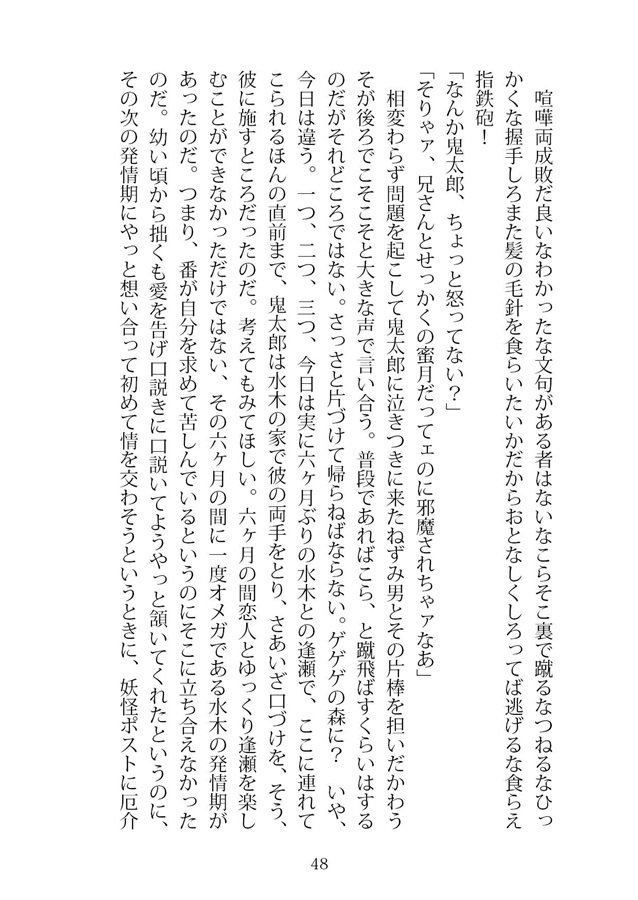 喧嘩両成敗だ良いなわかったな文句がある者はないなこらそこ裏で蹴るなつねるなひっ
かくな握手しろまた髪の毛針を食らいたいかだからおとなしくしろってば逃げるな食らえ
指鉄砲！
「なんか鬼太郎、ちょっと怒ってない？」
「そりゃァ、兄さんとせっかくの蜜月だってェのに邪魔されちゃァなあ」
　相変わらず問題を起こして鬼太郎に泣きつきに来たねずみ男とその片棒を担いだかわう
そが後ろでこそこそと大きな声で言い合う。普段であればこら、と蹴飛ばすくらいはする
のだがそれどころではない。さっさと片づけて帰らねばならない。ゲゲゲの森に？　いや、
今日は違う。一つ、二つ、三つ、今日は実に六ヶ月ぶりの水木との逢瀬で、ここに連れて
こられるほんの直前まで、鬼太郎は水木の家で彼の両手をとり、さあいざ口づけを、そう、
彼に施すところだったのだ。考えてもみてほしい。六ヶ月の間恋人とゆっくり逢瀬を楽し
むことができなかっただけではない、その六ヶ月の間に一度オメガである水木の発情期が
あったのだ。つまり、番が自分を求めて苦しんでいるというのにそこに立ち合えなかった
のだ。幼い頃から拙くも愛を告げ口説きに口説いてようやっと頷いてくれたというのに、
その次の発情期にやっと想い合って初めて情を交わそうというときに、妖怪ポストに厄介
48